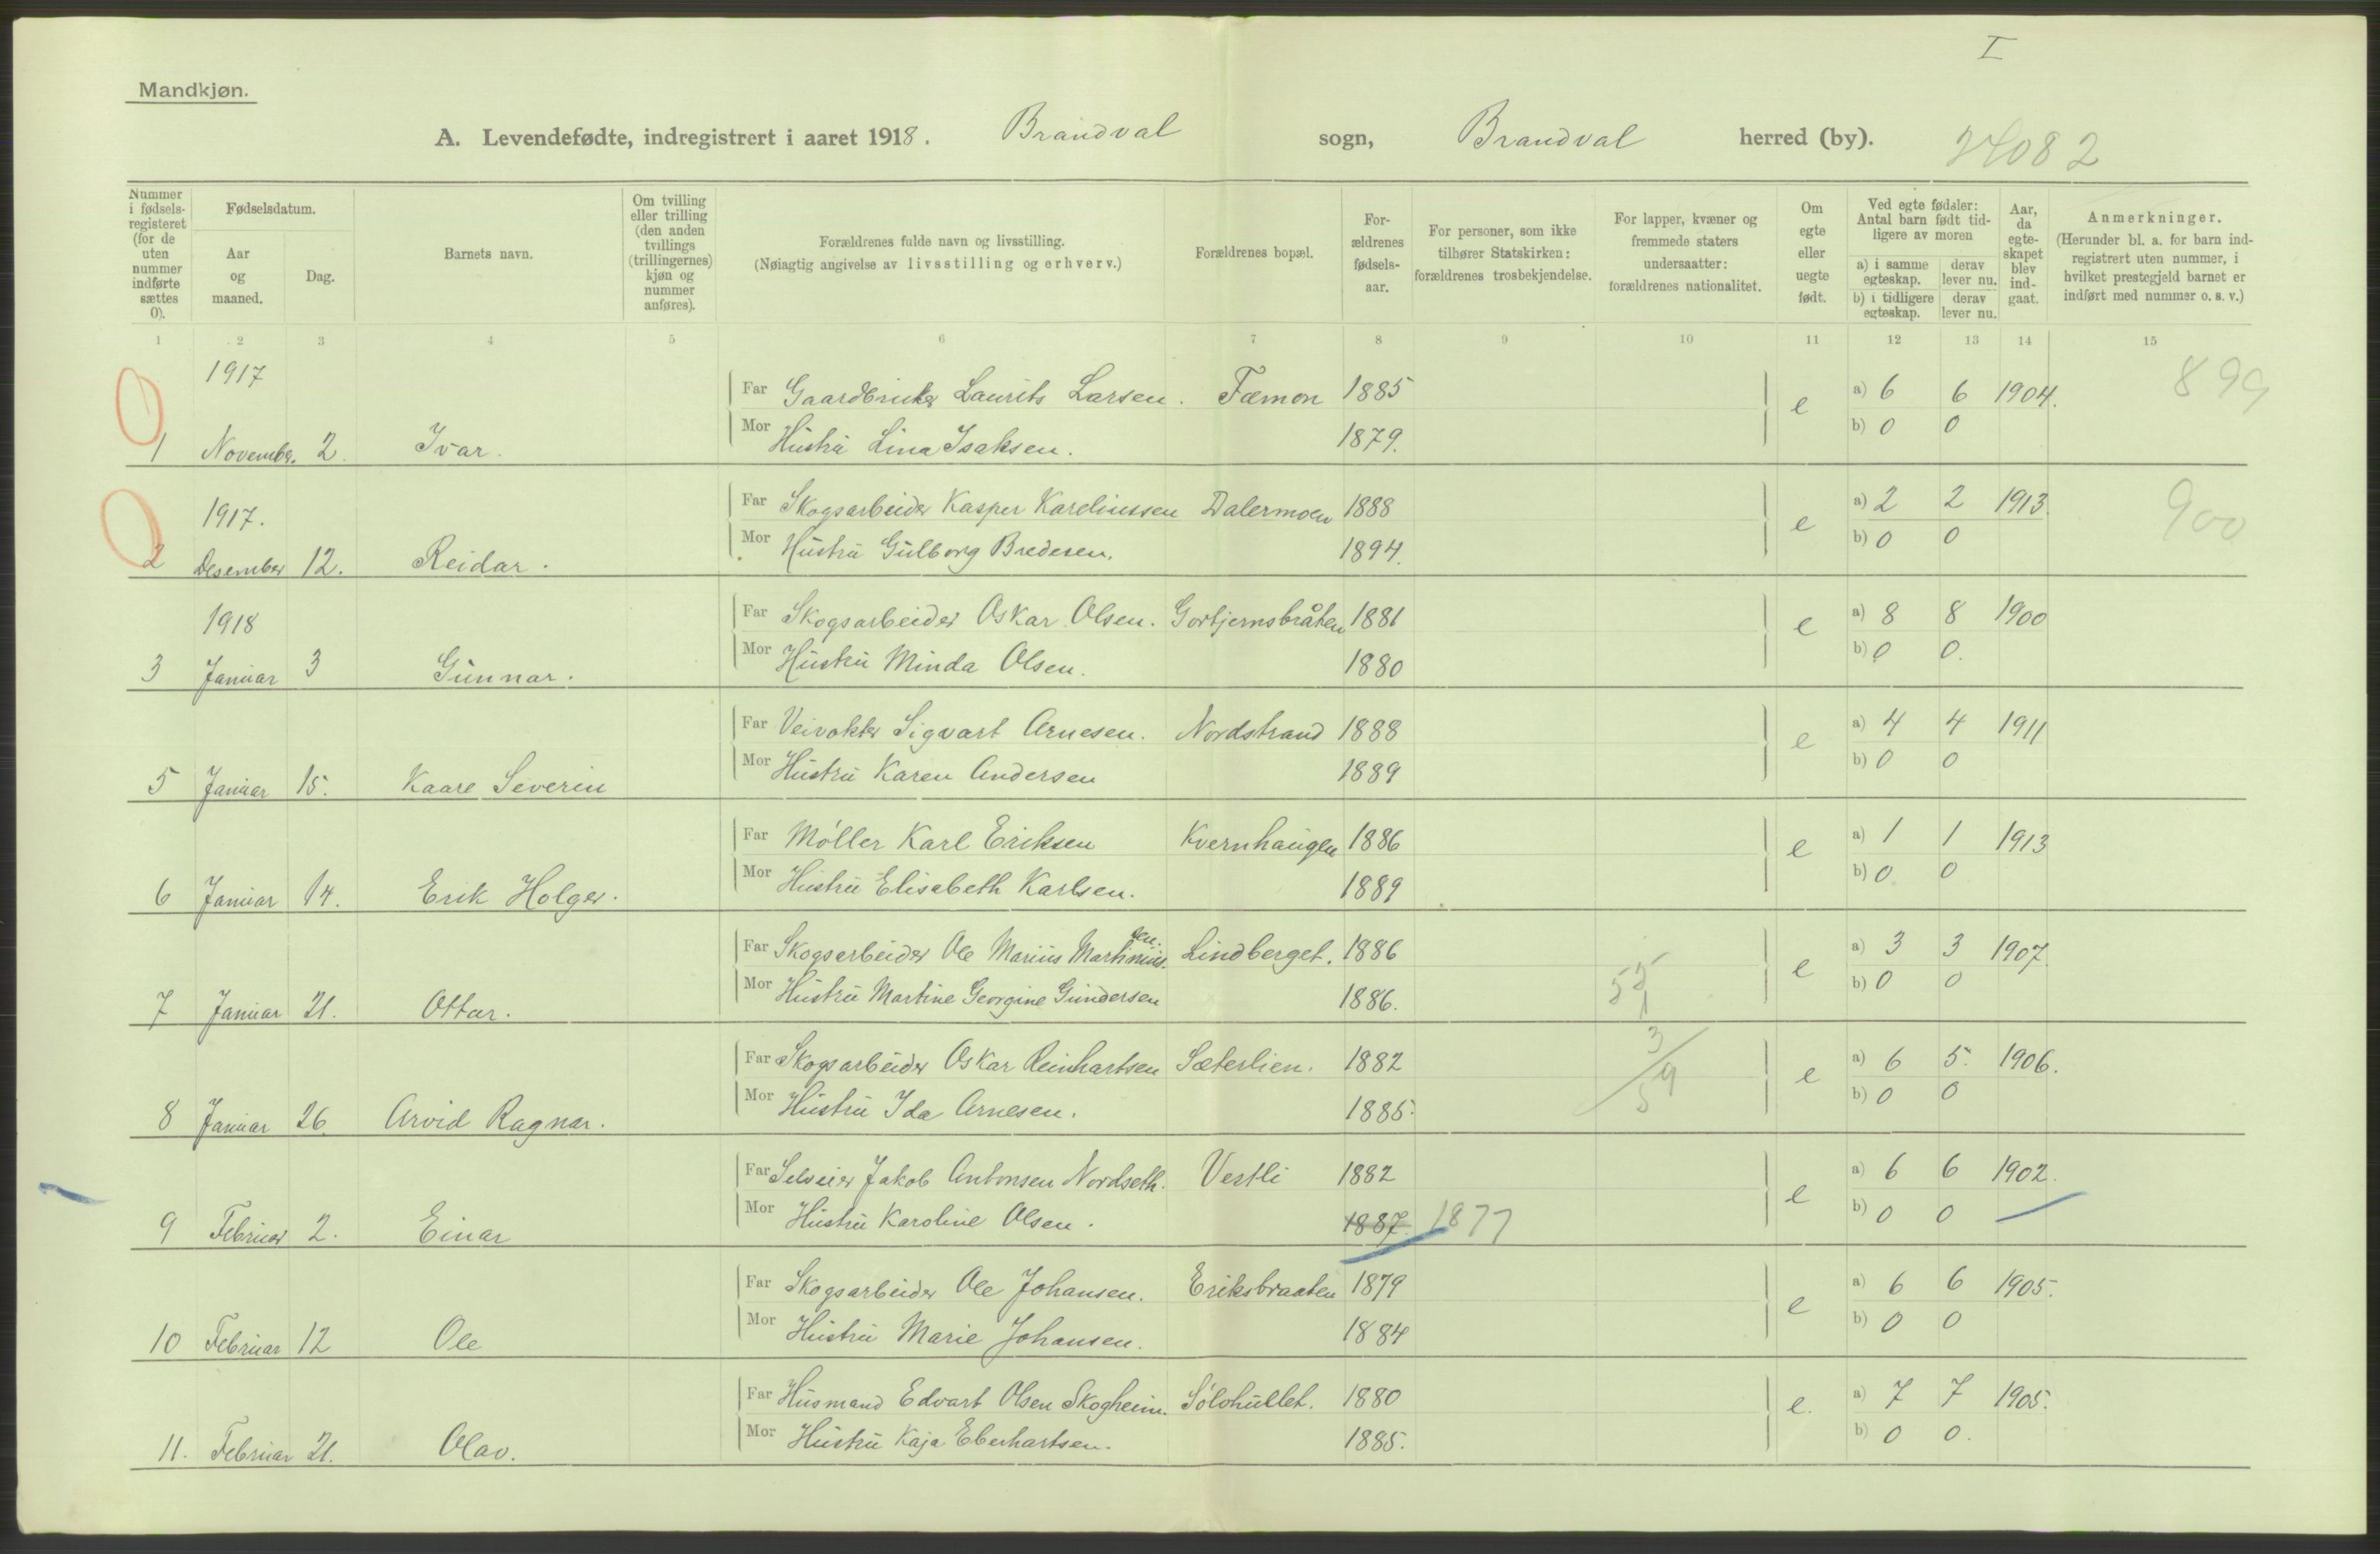 I
Mandkjøn.
A. Levendefødte, indregistrert i aaret 1918. Brandval sogn, Brandval herred (by). 24082
Nummer i fødsels-registeret (for de uten nummer indførte sættes 0).
Fødselsdatum.
Aar og maaned.
Dag.
Barnets navn.
Om tvilling eller trilling (den anden tvillings (trillingernes) kjøn og nummer anføres).
Forældrenes fulde navn og livsstilling.
(Nøiagtig angivelse av livsstilling og erhverv.)
Forældrenes bopæl.
For-ældrenes fødsels-aar.
For personer, som ikke tilhører Statskirken: forældrenes trosbekjendelse.
For lapper, kvæner og fremmede staters undersaatter: forældrenes nationalitet.
Om egte eller uegte født.
Ved egte fødsler: Antal barn født tid-ligere av moren
a) i samme egteskap. derav lever nu.
b) i tidligere egteskap. derav lever nu.
Aar, da egte-skapet blev ind-gaat.
Anmerkninger.
(Herunder bl. a. for barn ind-registrert uten nummer, i hvilket prestegjeld barnet er indført med nummer o. s. v.)
1 2 3 4 5 6 7 8 9 10 11 12 13 14 15
1917 Far Gaardbruker Laurits Larsen. Fæmon 1885 e a) 6 6 1904. 899
1 November. 2. Ivar. Mor Hustru Lina Isaksen. 1879. b) 0 0
1917. Far Skogsarbeider Kasper Kareliussen Dalermoen 1888 e a) 2 2 1913. 900
2 Desember 12. Reidar. Mor Hustru Gulborg Bredesen. 1894. b) 0 0
1918 Far Skogsarbeider Oskar Olsen. Gortjernsbråten 1881 e a) 8 8 1900
3 Januar 3 Gunnar. Mor Hustru Minda Olsen. 1880 b) 0 0.
Far Veivokter Sigvart Arnesen. Nordstrand 1888 e a) 4 4 1911
5 Januar 15. Kaare Severin Mor Hustru Karen Andersen 1889 b) 0 0
Far Møller Karl Eriksen Kvernhaugen 1886 e a) 1 1 1913
6 Januar 14. Erik Holger. Mor Hustru Elisabeth Karlsen. 1889 b) 0 0
Far Skogsarbeider Ole Marius Martiniussen. Lindberget. 1886 e a) 3 3 1907.
7 Januar 21. Ottar. Mor Hustru Martine Georgine Gundersen 1886. b) 0 0
Far Skogsarbeider Oskar Reinhartsen Sæterlien. 1882 e a) 6 5. 1906.
8 Januar 26 Arvid Ragnar. Mor Hustru Ida Arnesen. 1885. b) 0 0
Far Selveier Jakob Antonsen Nordseth. Vestli 1882 e a) 6 6 1902.
9 Februar 2. Einar Mor Hustru Karoline Olsen. 1887. 1877 b) 0 0
Far Skogsarbeider Ole Johansen. Eriksbraaten 1879 e a) 6 6 1905.
10 Februar 12 Ole Mor Hustru Marie Johansen. 1884 b) 0 0
Far Husmand Edvart Olsen Skogheim. Sølvhullet. 1880 e. a) 7 7 1905.
11. Februar 21. Olav. Mor Hustru Kaja Eberhartsen. 1885. b) 0 0.